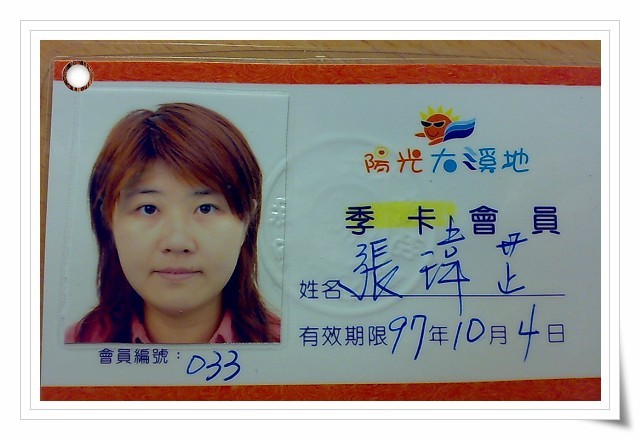 陽光大溪地
季卡會員
姓名 張瑋芷
有效期限97年10月4日
會員編號：033